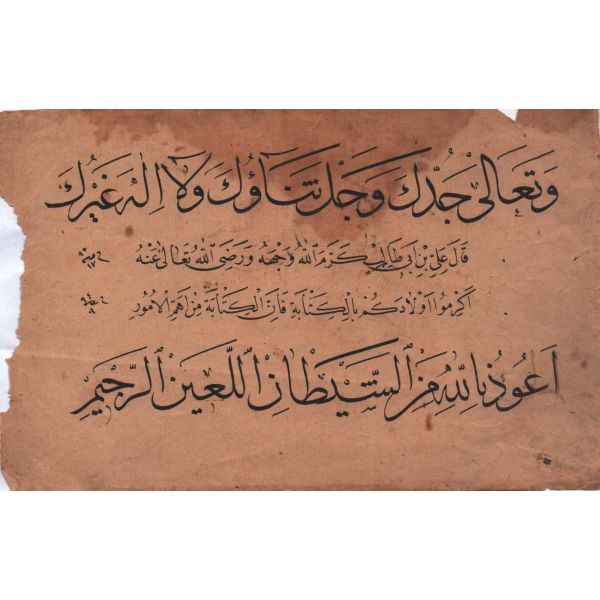 وَتَعَالىٰ جَدُّكَ وَجَلَّ ثَنَاؤُكَ وَلَا اِلٰهَ غَيْرُكَ
قَالَ عَلِىّ بْنِ اَبِى طَالِبْ كَرَّمَ اللّٰهُ وَجْهَهُ وَرَضِىَ اللّٰهُ تَعَالىٰ عَنْهُ
اَكْرِمُوا اَوْلَادَكُمْ بِالْكِتَابَةِ فَاِنَّ الْكِتَابَةَ مِنْ اَهَمِّ الْاُمُورِ
اَعُوذُ بِاللّٰهِ مِنَ الشَّيْطَانِ اللَّعِينِ الرَّجِيمِ